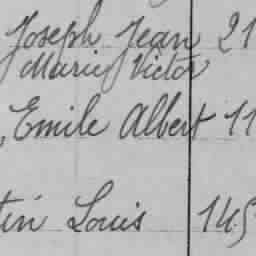 Joseph Jean 21
Marie Victor
, Emile Albert 11
tin Louis 145